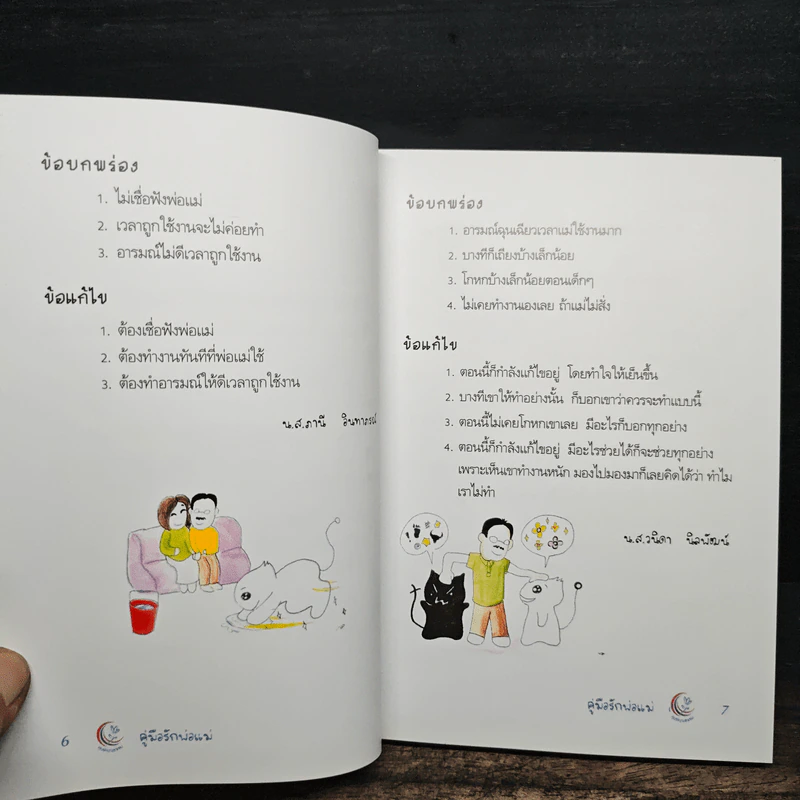 ข้อบกพร่อง
1. ไม่เชื่อฟังพ่อแม่
2. เวลาถูกใช้งานจะไม่ค่อยทำ
3. อารมณ์ไม่ดีเวลาถูกใช้งาน
ข้อแก้ไข
1. ต้องเชื่อฟังพ่อแม่
2. ต้องทำงานทันทีที่พ่อแม่ใช้
3. ต้องทำอารมณ์ให้ดีเวลาถูกใช้งาน
น.ส.ภานี อินทาภรณ์
6 คู่มือรักพ่อแม่
ข้อบกพร่อง
1. อารมณ์ฉุนเฉียวเวลาแม่ใช้งานมาก
2. บางทีก็เถียงบ้างเล็กน้อย
3. โกหกบ้างเล็กน้อยตอนเด็กๆ
4. ไม่เคยทำงานเองเลย ถ้าแม่ไม่สั่ง
ข้อแก้ไข
1. ตอนนี้ก็กำลังแก้ไขอยู่ โดยทำใจให้เย็นขึ้น
2. บางทีเขาให้ทำอย่างนั้น ก็บอกเขาว่าควรจะทำแบบนี้
3. ตอนนี้ไม่เคยโกหกเขาเลย มีอะไรก็บอกทุกอย่าง
4. ตอนนี้ก็กำลังแก้ไขอยู่ มีอะไรช่วยได้ก็จะช่วยทุกอย่าง
เพราะเห็นเขาทำงานหนัก มองไปมองมาก็เลยคิดได้ว่า ทำไม
เราไม่ทำ
น.ส.วนิดา นิลพัฒน์
คู่มือรักพ่อแม่ 7